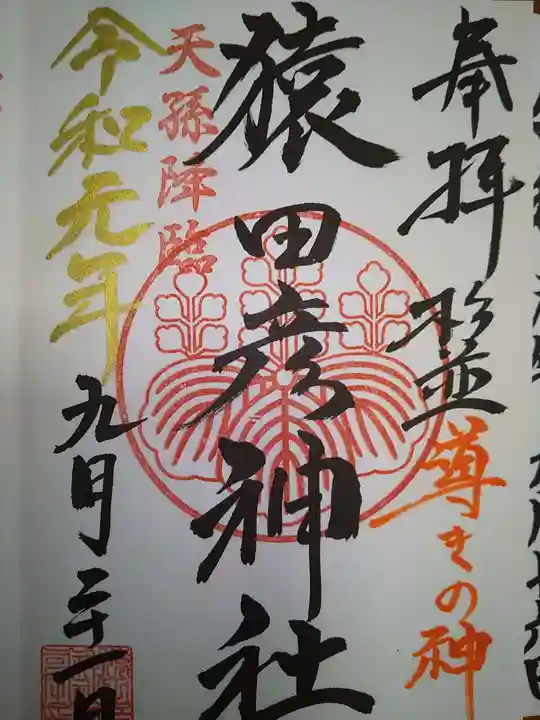 奉拝 杉並
導きの神
猿田彦神社
天孫降臨
令和元年
九月二十一日